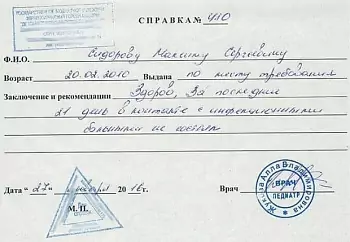 СПРАВКА № 410
Ф.И.О. Сидорову Максиму Сергеевичу
Возраст 20.02.2010 Выдана по месту требования
Заключение и рекомендации Здоров, За последние
21 день в контакте с инфекционными
больными не состоял
Дата "27" 2016г. Врач
М.П.
Жукова Алла Владимировна
ВРАЧ
ПЕДИАТР